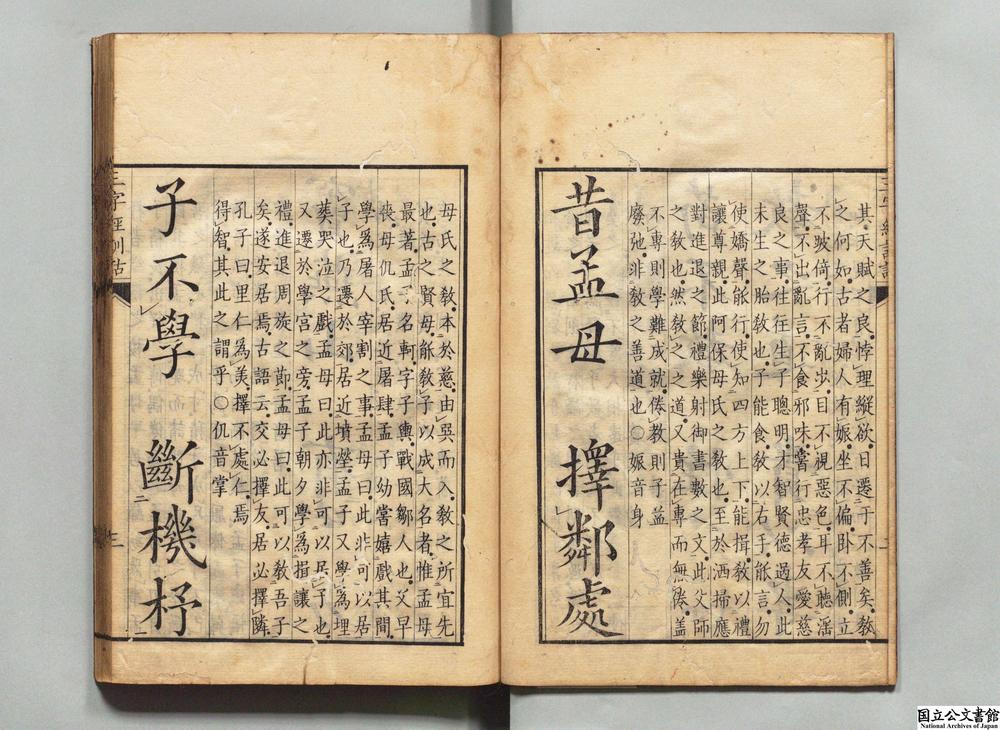 其天賦之良悖理縱欲日遷于不善矣教
之何如古者婦人有娠坐不偏卧不側立
不跛倚行不亂步目不視惡色耳不聽滛
聲不出亂言不食邪味嘗行忠孝友愛慈
良之事往往生子聰明才智賢德過人此
未生之胎教也子能食教以右手能言勿
使嬌聲能行使知四方上下能揖教以禮
讓尊親此阿保母氏之教也至於洒掃應
對進退之節禮樂射御書數之文此父師
之教也然教之之道又貴在專而無倦盖
不專則學難成就倦教則子益
縻弛非教之善道也○娠音身
昔孟母 擇鄰處
母氏之教本於慈由吳而入教之所宜先
也古之賢母能教子以成大名者惟孟母
最著孟子名軻字子輿戰國鄒人也父早
喪母仉氏居近屠肆孟子幼嘗嬉戲其間
學為屠人宰割之事孟母曰此非可以居
子也乃遷於郊居近墳塋孟子又學為埋
葬哭泣之戲孟母曰此亦非可以居子也
又遷於學宮之旁孟子朝夕學為揖讓之
禮進退周旋之節孟母曰此可以教吾子
矣遂安居焉古語云交必擇友居必擇隣
孔子曰里仁為美擇不處仁焉
得智其此之謂乎○仉音掌
子不學 斷機杼
三字經訓詁
国立公文書館
National Archives of Japan